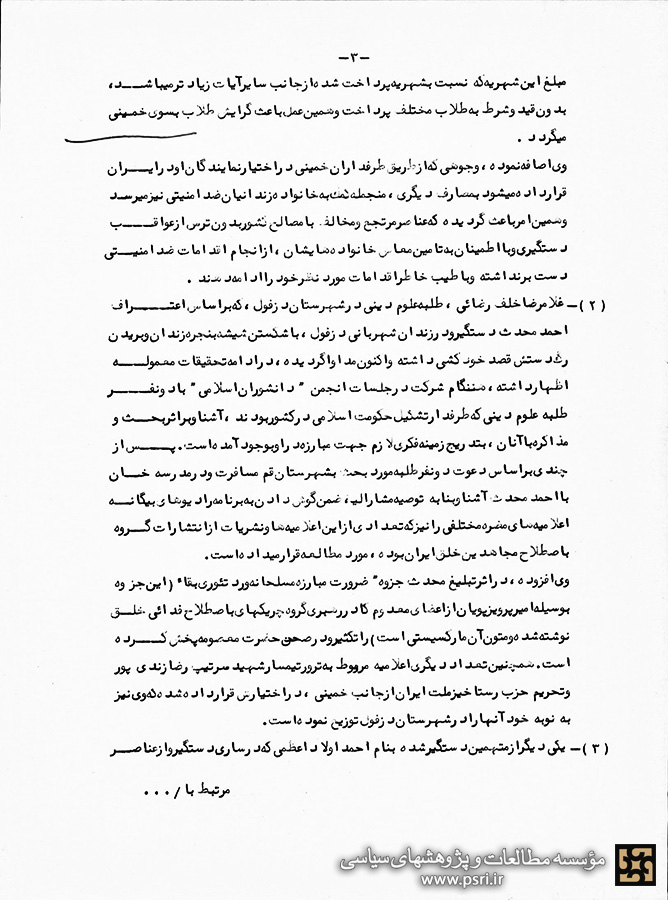 -۳-
مبلغ این شهریه که نسبت بشهریه پرداخت شده از جانب سایر آیات زیادتر میباشد،
بدون قید و شرط به طلاب مختلف پرداخت و همین عمل باعث گرایش طلاب بسوی خمینی
میگردد .
وی اضافه نموده ، وجوهی که از طریق طرفداران خمینی در اختیار نمایندگان او در ایران
قرار داده میشود بمصارف دیگری ، منجمله کمک به خانواده زندانیان ضد امنیتی نیز میرسد
و همین امر باعث گردیده که عناصر مرتجع و مخالف با مصالح کشور بدون ترس از عواقب
دستگیری و با اطمینان به تامین معاش خانواده هایشان ، از انجام اقدامات ضد امنیتی
دست برنداشته و با طیب خاطر اقدامات مورد نظر خود را ادامه دهند .
(۲)- غلامرضا خلف رضائی ، طلبه علوم دینی در شهرستان دزفول ، که بر اساس اعتراف
احمد محدث دستگیر و در زندان شهربانی دزفول ، با شکستن شیشه پنجره زندان و بریدن
رگ دستش قصد خودکشی داشته و اکنون مداوا گردیده ، در ادامه تحقیقات معموله
اظهار داشته ، هنگام شرکت در جلسات انجمن " دانشوران اسلامی " با دو نفر
طلبه علوم دینی که طرفدار تشکیل حکومت اسلامی در کشور بودند ، آشنا و بر اثر بحث و
مذاکره با آنان ، بتدریج زمینه فکری لازم جهت مبارزه در او بوجود آمده است . پس از
چندی بر اساس دعوت دو نفر طلبه مورد بحث بشهرستان قم مسافرت و در مدرسه خان
با احمد محدث آشنا و بنا به توصیه مشارالیه ، ضمن گوش دادن به برنامه رادیوهای بیگانه
اعلامیه های مضره مختلفی را نیز که تعدادی از این اعلامیه ها و نشریات از انتشارات گروه
باصطلاح مجاهدین خلق ایران بوده ، مورد مطالعه قرار میداده است .
وی افزوده ، در اثر تبلیغ محدث جزوه " ضرورت مبارزه مسلحانه و رد تئوری بقاء" (این جزوه
بوسیله امیر پرویز پویان از اعضای معدوم کادر رهبری گروه چریکهای باصطلاح فدائی خلق
نوشته شده و متون آن مارکسیستی است) را تکثیر و در صحن حضرت معصومه پخش کرده
است . همچنین تعداد دیگری اعلامیه مربوط به ترور تیمسار شهید سرتیپ رضا زندی پور
و تحریم حزب رستاخیز ملت ایران از جانب خمینی ، در اختیارش قرار داده شده که وی نیز
به نوبه خود آنها را در شهرستان دزفول توزیع نموده است .
(۳)- یکی دیگر از متهمین دستگیر شده بنام احمد اولاد اعظمی که در ساری دستگیر و از عناصر
مرتبط با / ۰۰۰
مؤسسه مطالعات و پژوهشهای سیاسی
www.psri.ir